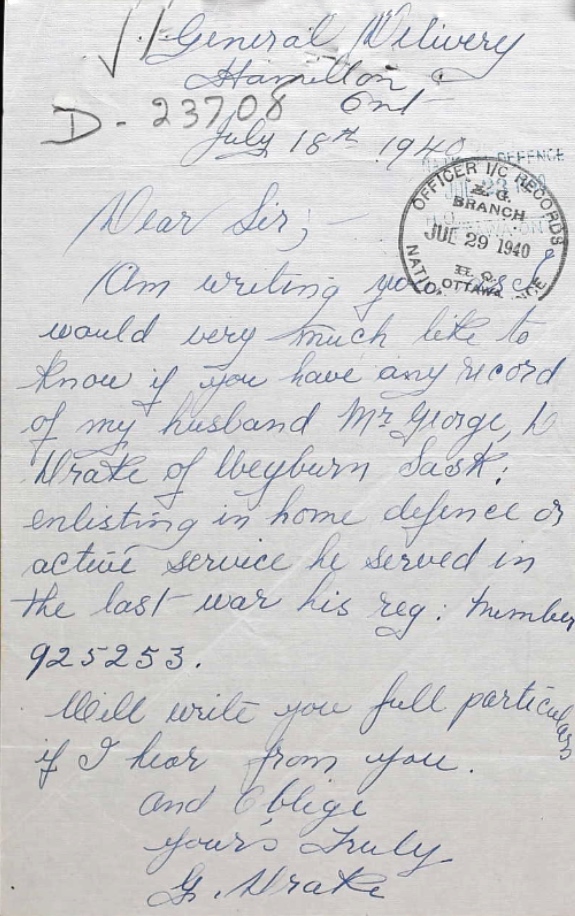 General Delivery
Hamilton
Ont
D - 23708
July 18th 1940
DEFENCE
OFFICER I/C RECORDS
BRANCH
JUL 29 1940
H.Q.
OTTAWA
Dear Sir;-
Am writing you as I
would very much like to
know if you have any record
of my husband Mr George,
Drake of Weyburn Sask:
enlisting in home defence or
active service he served in
the last war his reg: number
925253.
Will write you full particulars
if I hear from you.
and Oblige
yours Truly
G. Drake